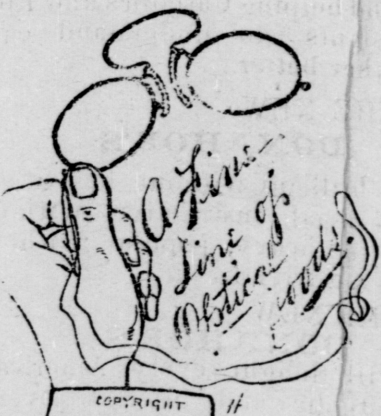 A Fine
Line of
Optical Goods.
COPYRIGHT